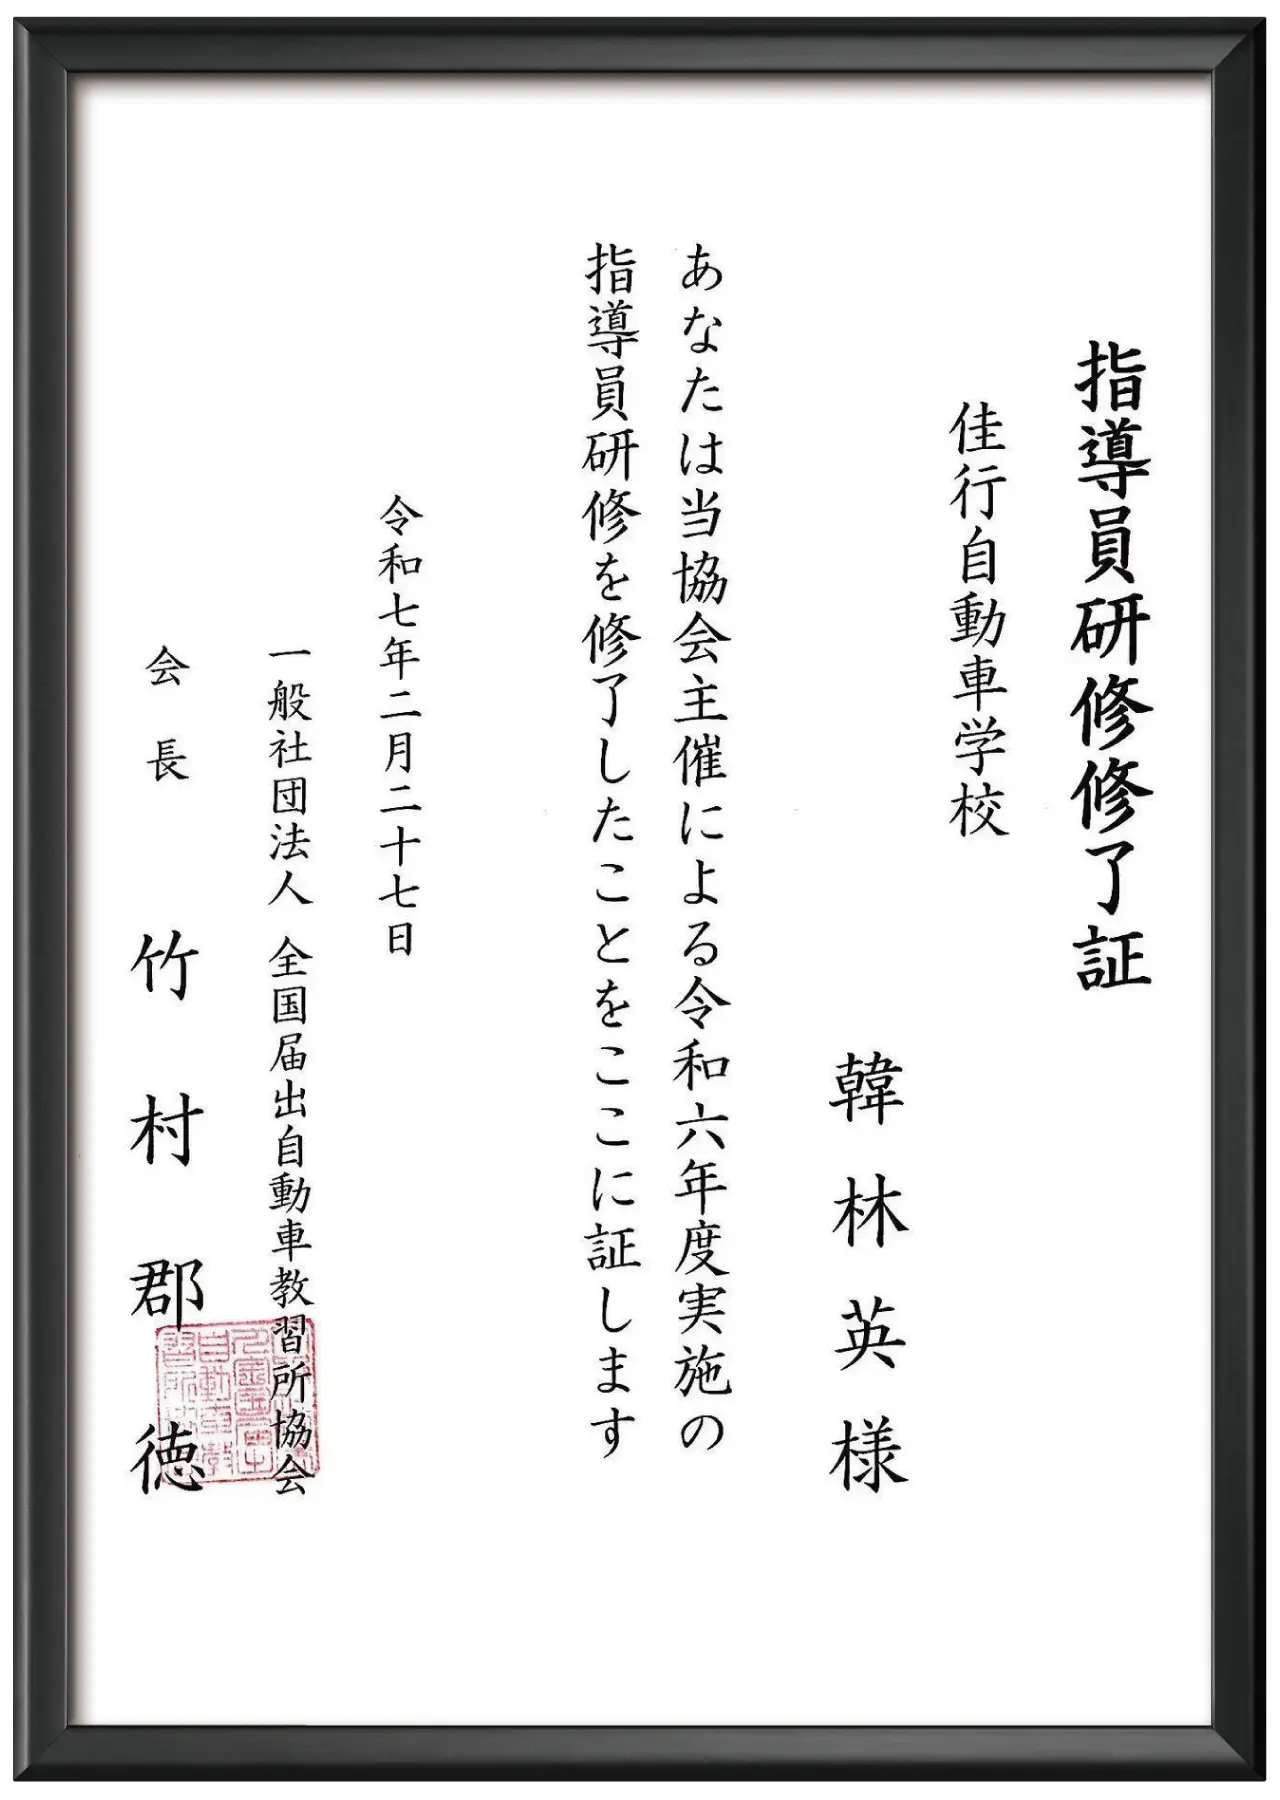 指導員研修修了証
佳行自動車学校
韓林英様
あなたは当協会主催による令和六年度実施の
指導員研修を修了したことをここに証します
令和七年二月二十七日
一般社団法人 全国届出自動車教習所協会
会長 竹村郡徳